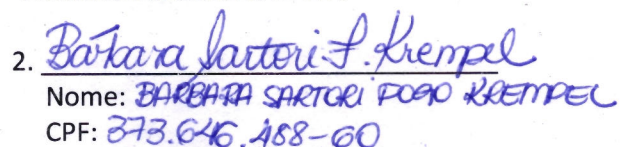 2. Barbara Sartori F. Krempel
Nome: BARBARA SARTORI FOGO KREMPEL
CPF: 373.646.488-60